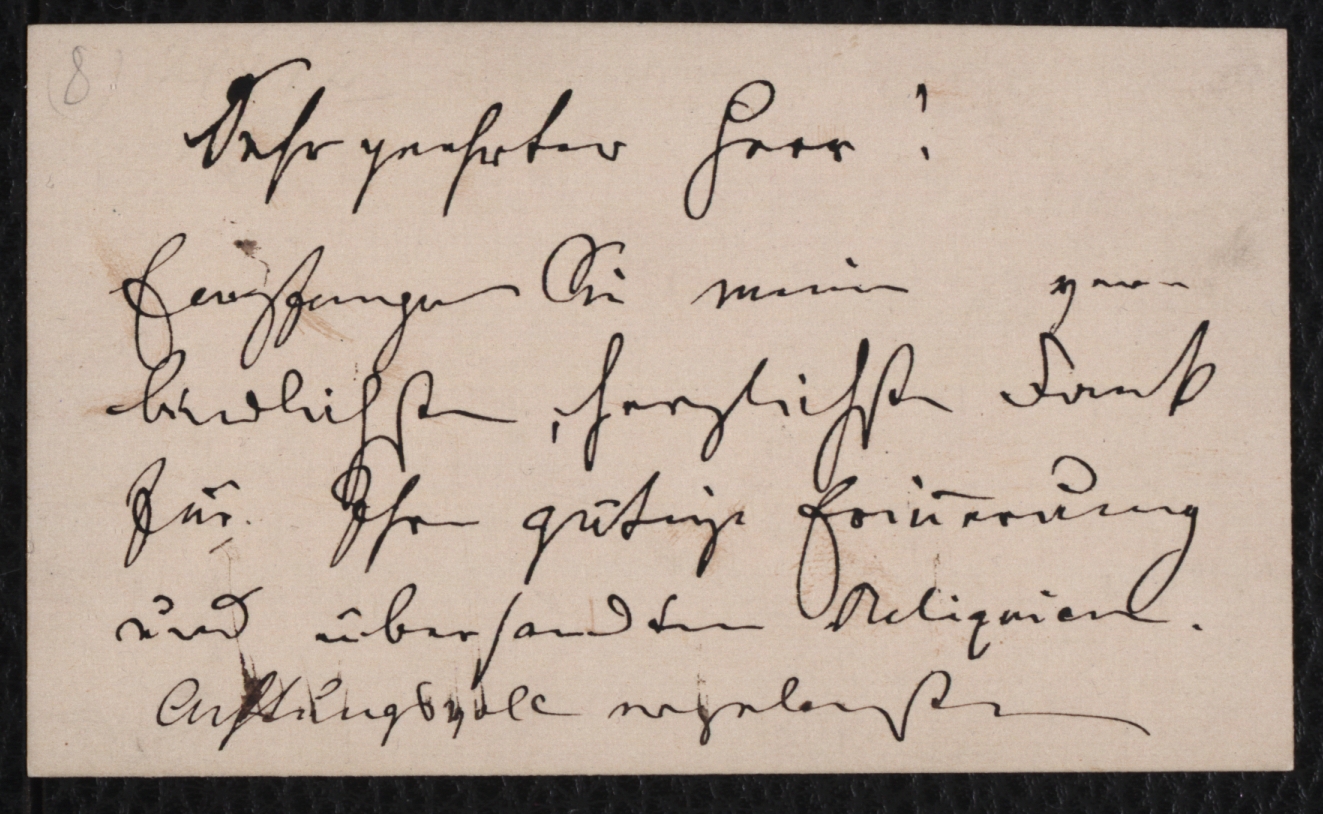 8
Sehr geehrter Herr!
Empfangen Sie meinen ver-
bindlichsten, herzlichsten Dank
für Ihre gütige Erinnerung
und übersandten Reliquien.
Achtungsvoll ergebenster